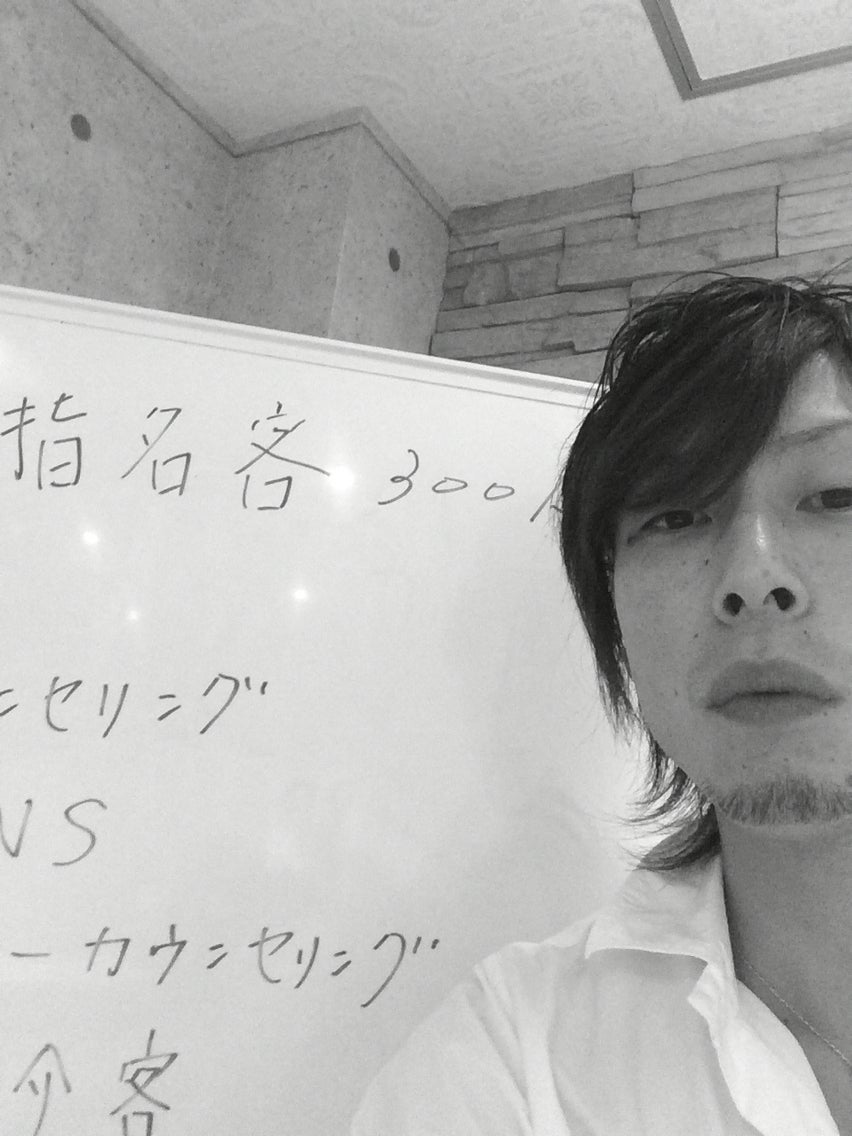 指名客 300人
ンセリング
NS
ーカウンセリング
介客